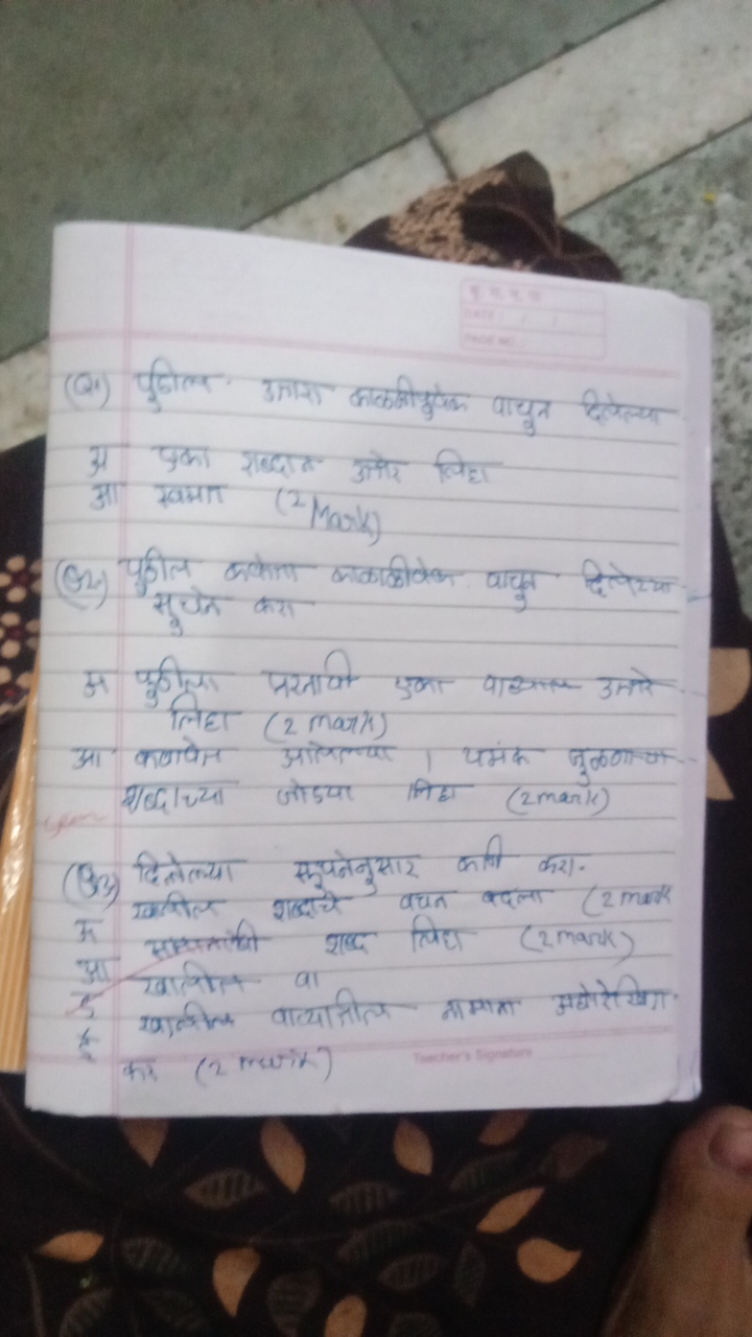 DATE / /
PAGE NO.
(Q1) पुढील उतारा काळजीपुर्वक वाचुन दिलेल्या
अ एका शब्दात उत्तरे लिहा
आ (2 Mark)
(Q2) पुढील कविता वाचुन दिलेल्या
सूचने करा
अ पुढील एका वाक्यात उत्तरे
लिहा (2 mark)
आ कवितेत आलेल्या यमक जुळणाऱ्या
शब्दांच्या जोडया लिहा (2 mark)
(Q3) दिलेल्या सूचनेनुसार कृती करा.
अ खालील शब्दाचे वचन बदला (2 mark
आ समानार्थी शब्द लिहा (2 mark)
इ खालील वा
ई खालील वाक्यातील नामाला अधोरेखित
करा (2 mark)
Teacher's Signature